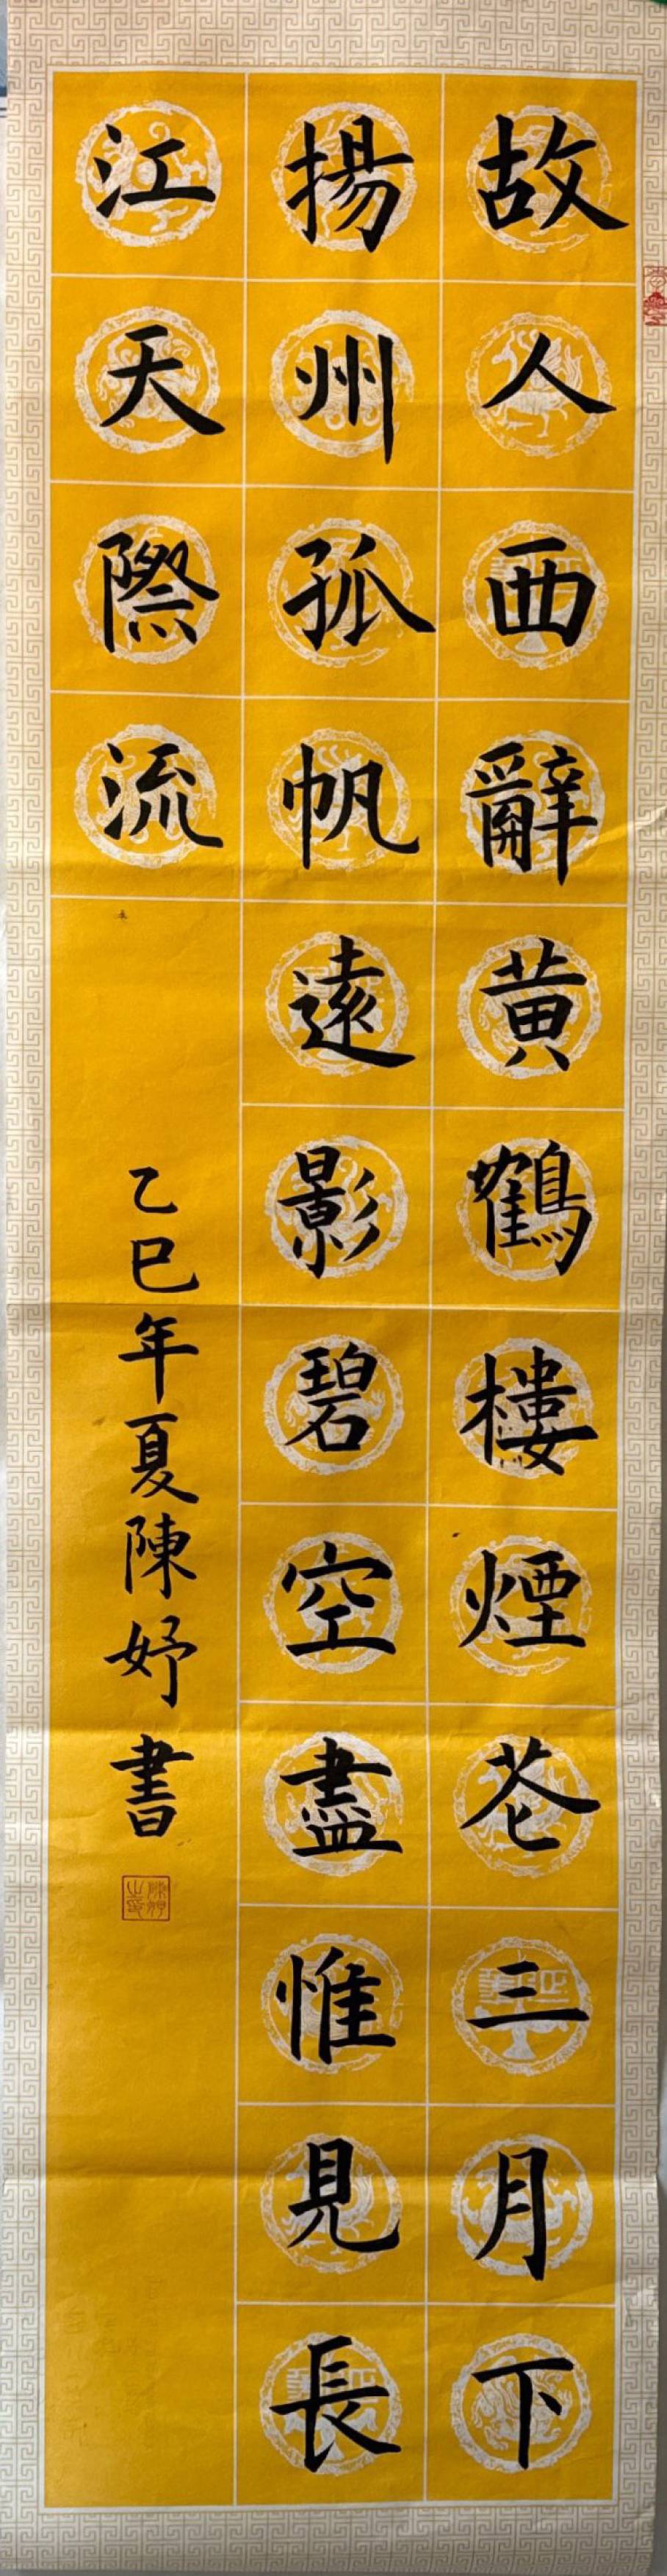 故人西辭黄鶴樓煙花三月下
揚州孤帆遠影碧空盡惟見長
江天際流
乙巳年夏陳妤書